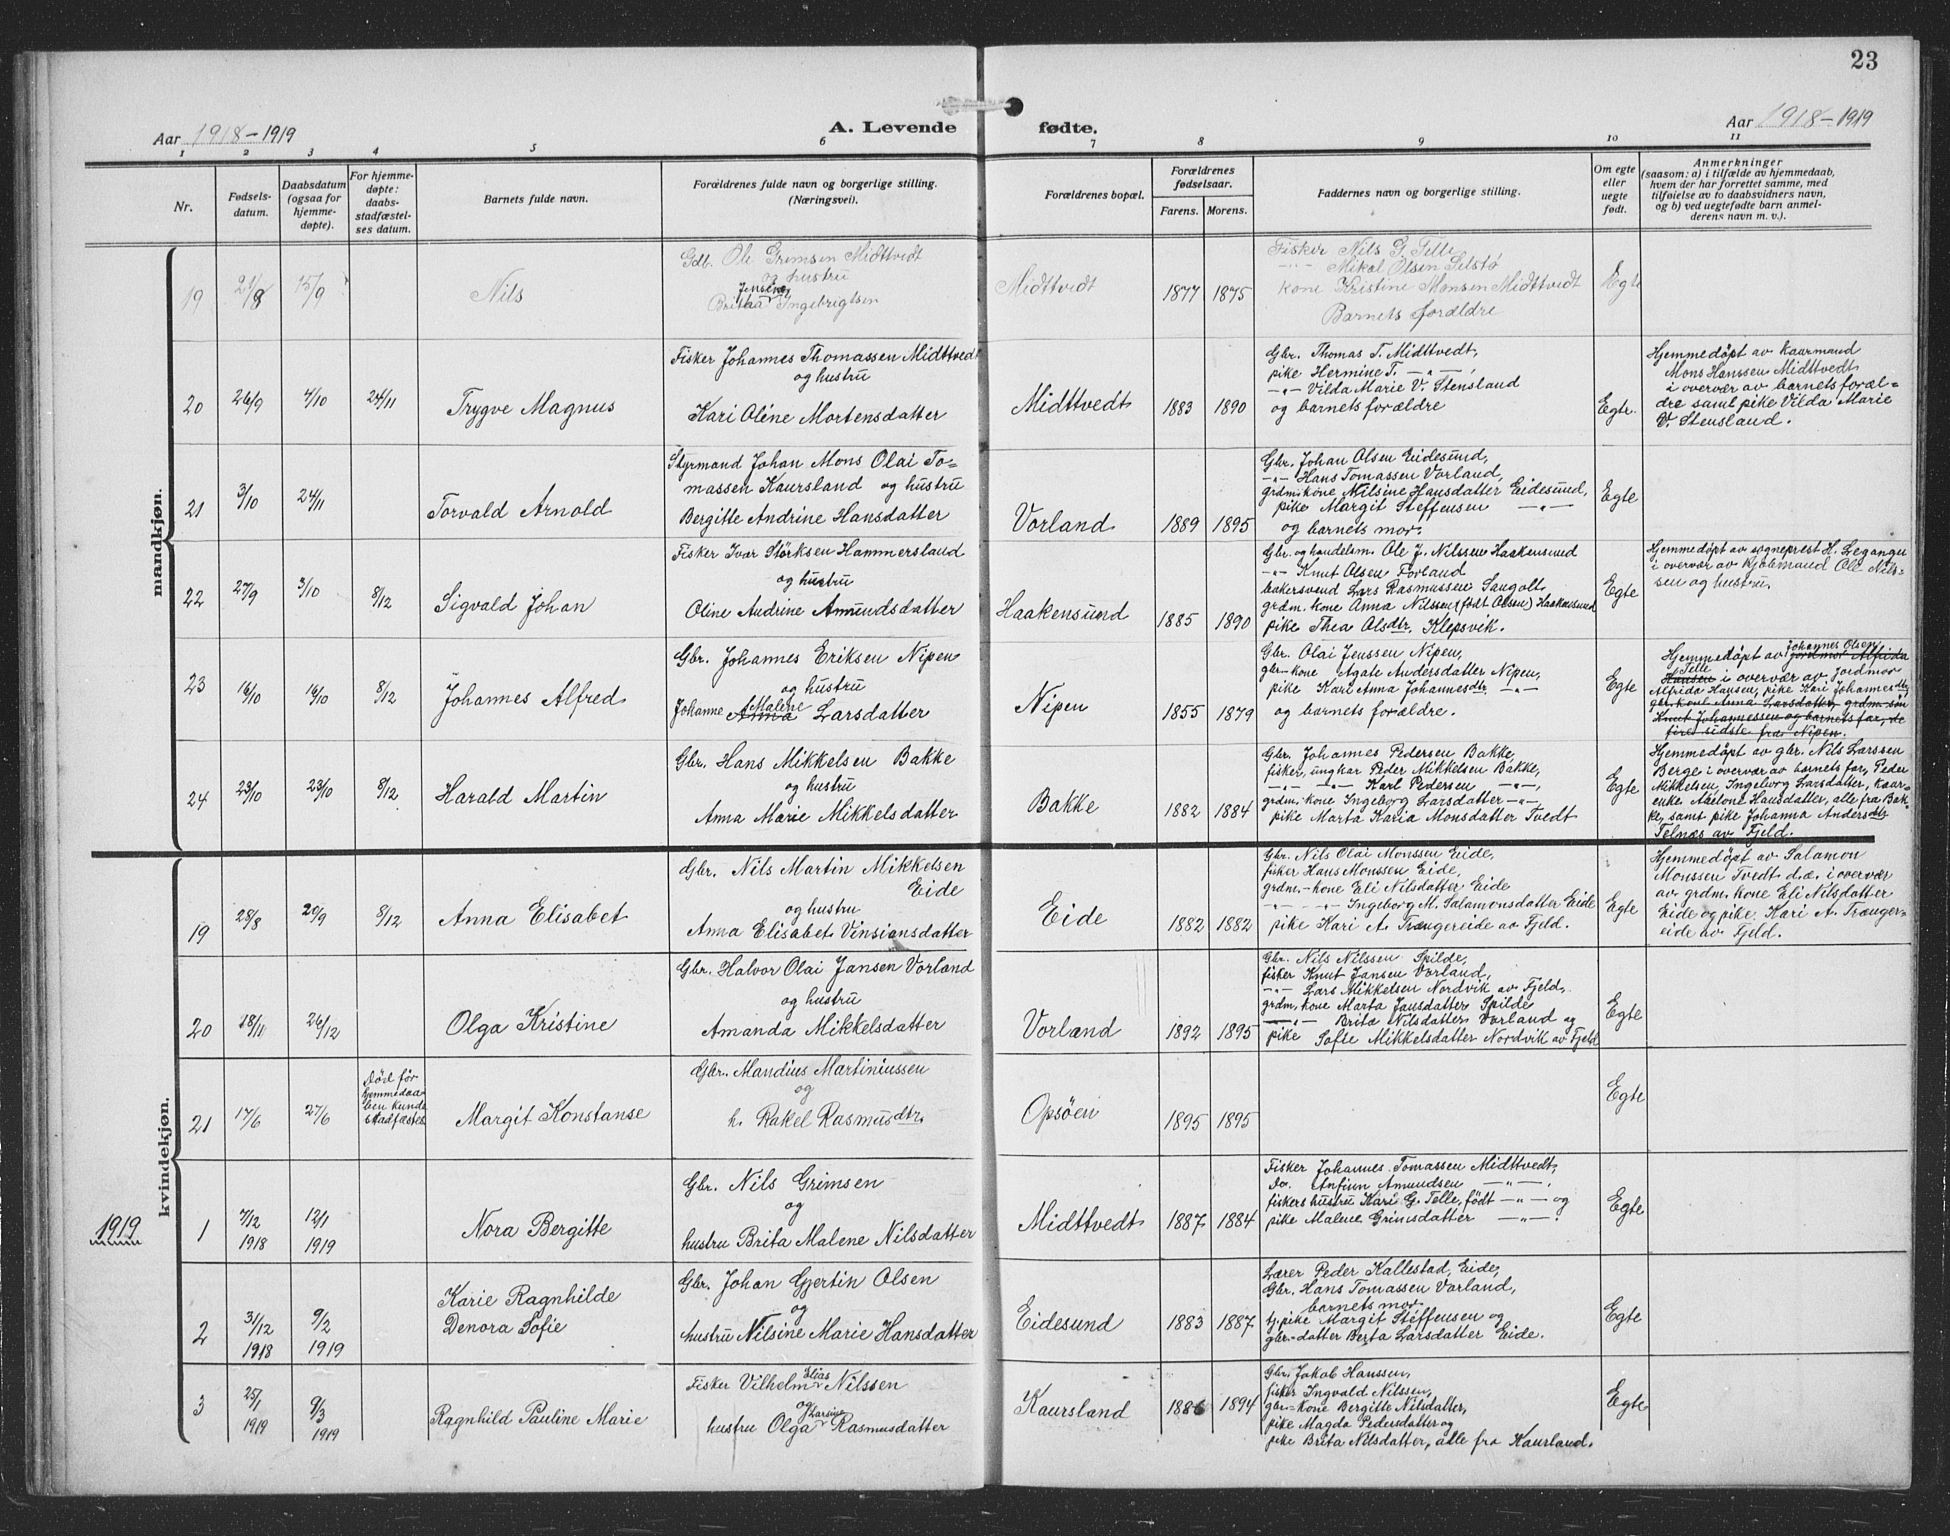 23
Aar 1918-1919
A. Levende fødte.
Aar 1918-1919
1 2 3 4 5 6 7 8 9 10 11
Nr.
Fødsels-
datum.
Daabsdatum
(ogsaa for
hjemme-
døpte).
For hjemme-
døpte:
daabs-
stadfæstel-
ses datum.
Barnets fulde navn.
Forældrenes fulde navn og borgerlige stilling.
(Næringsvei).
Forældrenes bopæl.
Forældrenes
fødselsaar.
Farens. Morens.
Faddernes navn og borgerlige stilling.
Om egte
eller
uegte
født.
Anmerkninger
(saasom: a) i tilfælde av hjemmedaab,
hvem der har forrettet samme, med
tilføielse av to daabsvidners navn,
og b) ved uegtefødte barn anmel-
derens navn m. v.).
mandkjøn.
19
21/8
15/9
Nils
Gdb. Ole Grimsen Midttvedt
og hustru
Jensine
Britha Ingebrigtsen
Midttvedt
1877 1875
Fisker Nils G. Telle
-"- Mikal Olsen Selstø
Kone Kristine Monsen Midttvedt
Barnets forældre
Egte
20
26/9
4/10
24/11
Trygve Magnus
Fisker Johannes Thomassen Midttvedt
og hustru
Kari Oléne Mortensdatter
Midttvedt
1883 1890
Gbr. Thomas T. Midttvedt,
pike Hermine T. -"-,
-"- Vilda Marie V. Stensland
og barnets forældre
Egte.
Hjemmedøpt av kaarmand
Mons Hanssen Midttvedt
i overvær av barnets foræl-
dre samt pike Vilda Marie
V. Stensland.
21
3/10
24/11
Torvald Arnold
Styrmand Johan Mons Olai To-
massen Kaursland og hustru
Bergitte Andrine Hansdatter
Vorland
1889 1895
Gbr. Johan Olsen Eidesund,
-"- Hans Tomassen Vorland,
grdm. kone Nilsine Hansdatter Eidesund,
pike Margit Steffensen -"-
og barnets mor.
Egte
22
27/9
3/10
8/12
Sigvald Johan
Fisker Ivar Størksen Hammersland
og hustru
Oline Andrine Amundsdatter
Haakensund
1885 1890
Gbr. og handelsm. Ole J. Nilssen Haakensund
-"- Knut Olsen Forland
bakersvend Lars Rasmussen Saugolt,
grdm. kone Anna Nilssen (født Olsen) Haakensund
pike Thea Olsdtr. Klepsvik.
Egte
Hjemmedøpt av sogneprest H. Legangu
i overvær av kjøbmand Ole Nils-
sen og hustru.
23
16/10
16/10
8/12
Johannes Alfred
Gbr. Johannes Eriksen Nipen
og hustru
Malene
Johanne Anna Larsdatter
Nipen
1855 1879
Gbr. Olai Jenssen Nipen,
gbr-kone Agate Andersdatter Nipen,
pike Kari Anna Johannesdtr -"-
og barnets forældre.
Egte
Johannes Olsen
Hjemmedøpt av jordmor Alfrida
Telle
Hansen i overvær av jordmor
Alfrida Hansen, pike Kari Johannesdtr,
gbr. kone Anna Larsdatter, grdm. søn
Knut Johannessen og barnets far, de
fire sidste fra Nipen.
24
23/10
23/10
8/12
Harald Martin
Gbr. Hans Mikkelsen Bakke
og hustru
Anna Marie Mikkelsdatter
Bakke
1882 1884
Gbr. Johannes Pedersen Bakke,
fisker, ungkar Peder Mikkelsen Bakke,
-"- -"- Karl Pedersen -"-,
grdm. kone Ingeborg Larsdatter -"-
pike Marta Karia Monsdatter Tvedt
Egte
Hjemmedøpt av gbr. Nils Larssen
Berge i overvær av barnets far, Peder
Mikkelsen, Ingeborg Larsdatter, kaar-
enke Hansdatter, alle fra Bak-
ke, samt pike Johanna Andersdtr
Telnæs av Fjeld.
kvindekjøn.
19
28/8
29/9
8/12
Anna Elisabet
Gbr. Nils Martin Mikkelsen
Eide
og hustru
Anna Elisabet Vinsiansdatter
Eide
1882 1882
Gbr. Nils Olai Monssen Eide,
fisker Hans Monssen Eide,
grdm.-kone Eli Nilsdatter Eide
-"- -"- Ingeborg M. Salamonsdatter Eide
pike Kari A. Trængereide av Fjeld.
Egte
Hjemmedøpt av Salamon
Monssen Tvedt d.æ. i overvær
av grdm. kone Eli Nilsdatter
Eide og pike Kari A. Trænger-
eide av Fjeld.
20
28/11
26/12
Olga Kristine
Gbr. Halvor Olai Jansen Vorland
og hustru
Amanda Mikkelsdatter
Vorland
1892 1895
Gbr. Nils Nilssen Spilde,
fisker Knut Jansen Vorland,
-"- Lars Mikkelsen Nordvik av Fjeld,
grdm. kone Marta Jansdatter Spilde
-"- Brita Nilsdatter Vorland og
pike Sofie Mikkelsdatter Nordvik av Fjeld
Egte
21
17/6
27/6
Død før
hjemmedaa-
ben kunde
stadfæstes
Margit Konstanse
Gbr. Mandius Martiniussen
og
h. Rakel Rasmusdtr.
Opsøen
1895 1895
Egte
1919
1
7/12
1918
12/1
1919
Nora Bergitte
Gbr. Nils Grimsen
og
hustru Brita Malene Nilsdatter
Midttvedt
1887 1884
Fisker Johannes Tomassen Midttvedt,
do. Anfinn Amundsen -"-,
fiskers hustru Kari G. Telle, født -"- og
pike Malene Grimsdatter -"-.
Egte
2
31/12
1918
9/2
1919
Karie Ragnhilde
Denora Sofie
Gbr. Johan Gjertin Olsen
og
hustru Nilsine Marie Hansdatter
Eidesund
1883 1887
Lærer Peder Kallestad, Eide,
Gbr. Hans Tomassen Vorland,
barnets mor
tj.pike Margit Steffensen og
gbr-datter Berta Larsdatter Eide.
Egte
3
25/1
1919
9/3
1919
Ragnhild Pauline Marie
Elias
Fisker Vilhelm Nilssen
og
Larsine
hustru Olga Rasmusdatter
Kaursland
1886 1894
Gbr. Jakob Hanssen,
fisker Ingvald Nilssen,
gbr-kone Bergitte Nilsdatter,
pike Magda Pedersdatter og
pike Brita Nilsdatter, alle fra Kaursland.
Egte